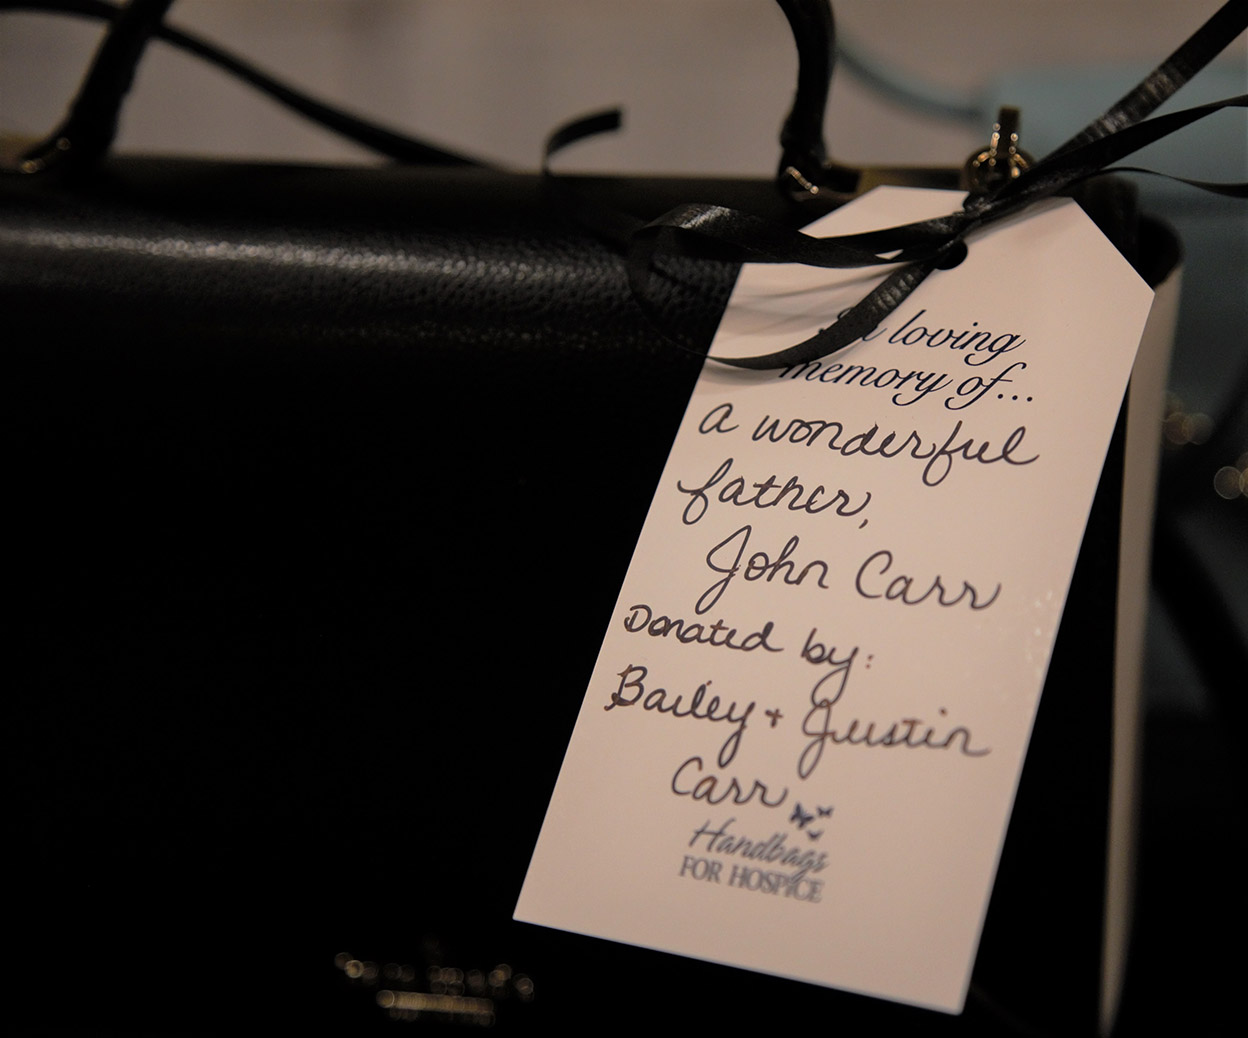 In loving
memory of...
a wonderful
father,
John Carr
Donated by:
Bailey + Justin
Carr
Handbags
FOR HOSPICE